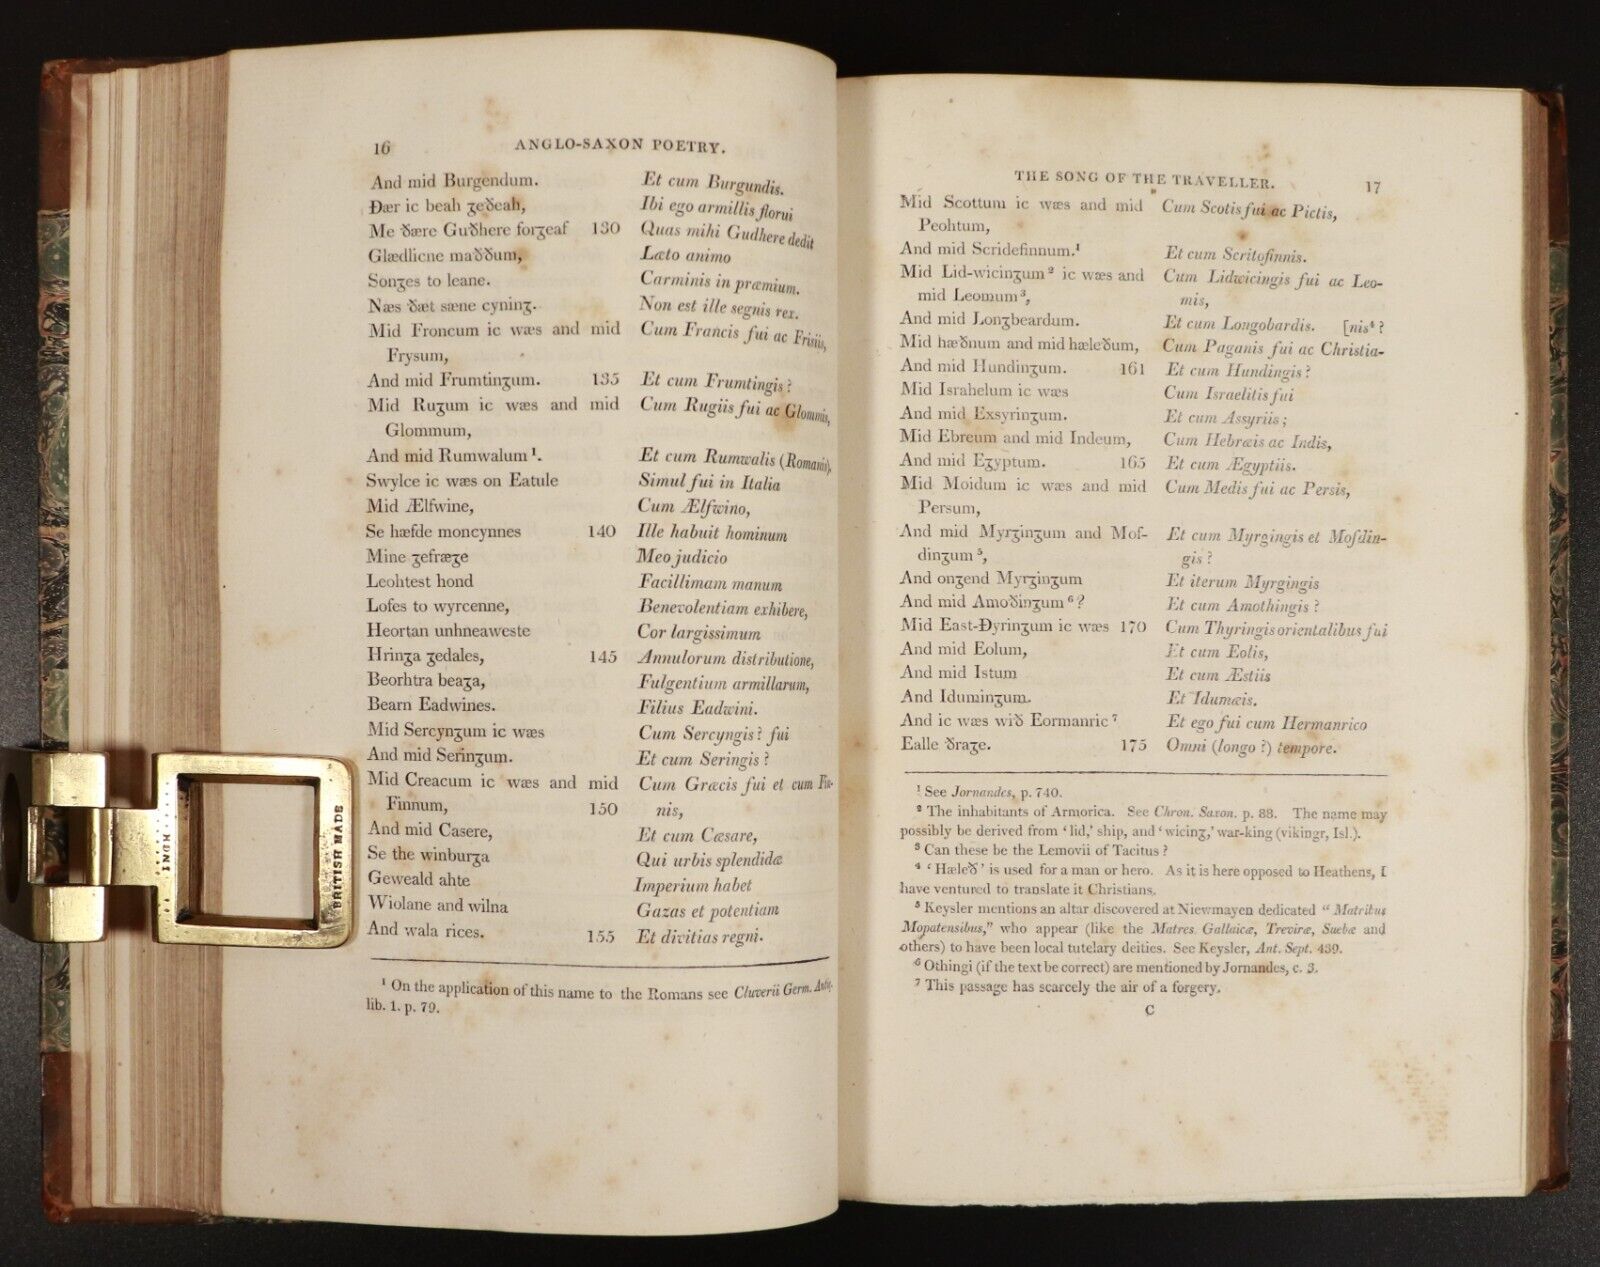 16 ANGLO-SAXON POETRY.
And mid Burgendum. Et cum Burgundis.
Ðær ic beah ȝeðeah, Ibi ego armillis florui
Me ðære Guðhere forȝeaf 130 Quas mihi Gudhere dedit
Glædlicne maððum, Læto animo
Sonȝes to leane. Carminis in præmium.
Næs ðæt sæne cyninȝ. Non est ille segnis rex.
Mid Froncum ic wæs and mid Cum Francis fui ac Frisiis,
Frysum,
And mid Frumtinȝum. 135 Et cum Frumtingis?
Mid Ruȝum ic wæs and mid Cum Rugiis fui ac Glommis,
Glommum,
And mid Rumwalum 1. Et cum Rumwalis (Romanis),
Swylce ic wæs on Eatule Simul fui in Italia
Mid Ælfwine, Cum Ælfwino,
Se hæfde moncynnes 140 Ille habuit hominum
Mine ȝefræȝe Meo judicio
Leohtest hond Facillimam manum
Lofes to wyrcenne, Benevolentiam exhibere,
Heortan unhneaweste Cor largissimum
Hrinȝa ȝedales, 145 Annulorum distributione,
Beorhtra beaȝa, Fulgentium armillarum,
Bearn Eadwines. Filius Eadwini.
Mid Sercynȝum ic wæs Cum Sercyngis? fui
And mid Serinȝum. Et cum Seringis?
Mid Creacum ic wæs and mid Cum Græcis fui et cum Fin-
Finnum, 150 nis,
And mid Casere, Et cum Cæsare,
Se the winburȝa Qui urbis splendidæ
Geweald ahte Imperium habet
Wiolane and wilna Gazas et potentiam
And wala rices. 155 Et divitias regni.
1 On the application of this name to the Romans see Cluverii Germ. Antiq.
lib. 1. p. 79.
INGH
BRITISH MADE
THE SONG OF THE TRAVELLER. 17
Mid Scottum ic wæs and mid Cum Scotis fui ac Pictis,
Peohtum,
And mid Scridefinnum.1 Et cum Scritofinnis.
Mid Lid-wicinȝum 2 ic wæs and Cum Lidwicingis fui ac Leo-
mid Leomum 3, mis,
And mid Lonȝbeardum. Et cum Longobardis. [nis 4?
Mid hæðnum and mid hæleðum, Cum Paganis fui ac Christia-
And mid Hundinȝum. 161 Et cum Hundingis?
Mid Israhelum ic wæs Cum Israelitis fui
And mid Exsyrinȝum. Et cum Assyriis;
Mid Ebreum and mid Indeum, Cum Hebræis ac Indis,
And mid Eȝyptum. 165 Et cum Ægyptiis.
Mid Moidum ic wæs and mid Cum Medis fui ac Persis,
Persum,
And mid Myrȝinȝum and Mof- Et cum Myrgingis et Mofdin-
dinȝum 5, gis?
And onȝend Myrȝinȝum Et iterum Myrgingis
And mid Amoðinȝum 6? Et cum Amothingis?
Mid East-Ðyrinȝum ic wæs 170 Cum Thyringis orientalibus fui
And mid Eolum, Et cum Eolis,
And mid Istum Et cum Æstiis
And Iduminȝum. Et Idumæis.
And ic wæs wið Eormanric 7 Et ego fui cum Hermanrico
Ealle ðraȝe. 175 Omni (longo?) tempore.
1 See Jornandes, p. 740.
2 The inhabitants of Armorica. See Chron. Saxon. p. 88. The name may
possibly be derived from 'lid,' ship, and 'wicinȝ,' war-king (vikingr, Isl.).
3 Can these be the Lemovii of Tacitus?
4 'Hæleð' is used for a man or hero. As it is here opposed to Heathens, I
have ventured to translate it Christians.
5 Keysler mentions an altar discovered at Niewmayen dedicated "Matribus
Mopatensibus," who appear (like the Matres Gallaicæ, Treviræ, Suebæ and
others) to have been local tutelary deities. See Keysler, Ant. Sept. 439.
6 Othingi (if the text be correct) are mentioned by Jornandes, c. 3.
7 This passage has scarcely the air of a forgery.
C